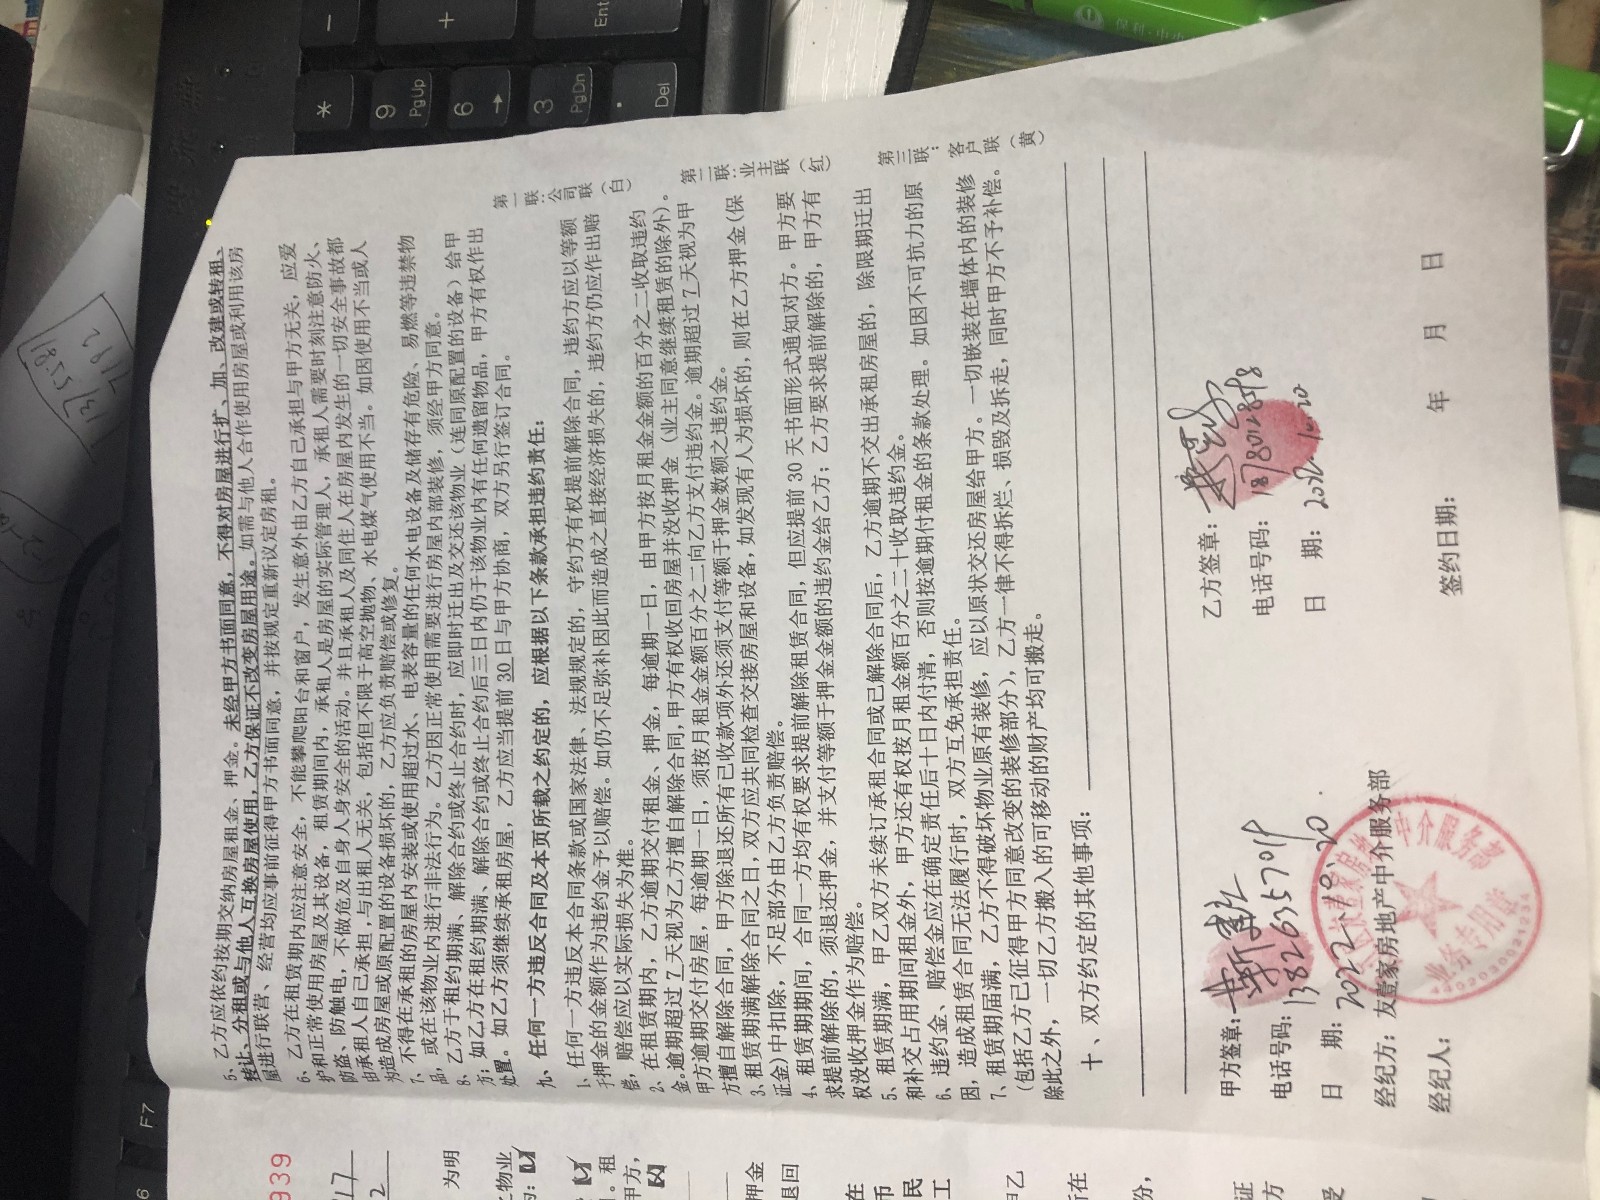 5、乙方应依约按期交纳房屋租金、押金。未经甲方书面同意，不得对房屋进行扩、加、改建或转租、
转让、分租或与他人互换房屋使用，乙方保证不改变房屋用途。如需与他人合作使用房屋或利用该房
屋进行联营、经营均应事前征得甲方书面同意，并按规定重新议定房租。
6、乙方在租赁期内应注意安全，不能攀爬阳台和窗户，发生意外由乙方自己承担与甲方无关，应爱
护和正常使用房屋及其设备，租赁期间内，承租人是房屋的实际管理人，承租人需要时刻注意防火、
防盗、防触电，不做危及自身人身安全的活动。并且承租人及同住人在房屋内发生的一切安全事故都
由承租人自己承担，与出租人无关，包括但不限于高空抛物、水电煤气使用不当。如因使用不当或人
为造成房屋或原配置的设备损坏的，乙方应负责赔偿或修复。
7、不得在承租的房屋内安装或使用超过水、电表容量的任何水电设备及储存有危险、易燃等违禁物
品，或在该物业内进行非法行为。乙方因正常使用需要进行房屋内部装修，须经甲方同意。
8、乙方于租约期满、解除合约或终止合约时，应即时迁出及交还该物业（连同原配置的设备）给甲
方；如乙方在租约期满、解除合约或终止合约后三日内仍于该物业内有任何遗留物品，甲方有权作出
处置。如乙方须继续承租房屋，乙方应当提前 30 日与甲方协商，双方另行签订合同。
九、任何一方违反合同及本页所载之约定的，应根据以下条款承担违约责任：
1、任何一方违反本合同条款或国家法律、法规规定的，守约方有权提前解除合同，违约方应以等额
于押金的金额作为违约金予以赔偿。如仍不足弥补因此而造成之直接经济损失的，违约方仍应作出赔
偿，赔偿应以实际损失为准。
2、在租赁期内，乙方逾期交付租金、押金，每逾期一日，由甲方按月租金金额的百分之二收取违约
金。逾期超过 7 天视为乙方擅自解除合同，甲方有权收回房屋并没收押金（业主同意继续租赁的除外）。
甲方逾期交付房屋，每逾期一日，须按月租金金额百分之二向乙方支付违约金。逾期超过 7 天视为甲
方擅自解除合同，甲方除退还所有已收款项外还须支付等额于押金数额之违约金。
3、租赁期满解除合同之日，双方应共同检查交接房屋和设备，如发现有人为损坏的，则在乙方押金（保
证金）中扣除，不足部分由乙方负责赔偿。
4、租赁期期间，合同一方均有权要求提前解除租赁合同，但应提前 30 天书面形式通知对方。甲方要
求提前解除的，须退还押金，并支付等额于押金金额的违约金给乙方；乙方要求提前解除的，甲方有
权没收押金作为赔偿。
5、租赁期满，甲乙双方未续订承租合同或已解除合同后，乙方逾期不交出承租房屋的，除限期迁出
和补交占用期间租金外，甲方还有权按月租金额百分之二十收取违约金。
6、违约金、赔偿金应在确定责任后十日内付清，否则按逾期付租金的条款处理。如因不可抗力的原
因，造成租赁合同无法履行时，双方互免承担责任。
7、租赁期届满，乙方不得破坏物业原有装修，应以原状交还房屋给甲方。一切嵌装在墙体内的装修
（包括乙方已征得甲方同意改变的装修部分），乙方一律不得拆烂、损毁及拆走，同时甲方不予补偿。
除此之外，一切乙方搬入的可移动的财产均可搬走。
十、双方约定的其他事项：
第一联：公司联（白）
第二联：业主联（红）
第三联：客户联（黄）
甲方签章：
电话号码：13826357019
日 期：2022.10.20
经纪方：友壹家房地产中介服务部
经纪人：
中介服务部
业务专用章
乙方签章：
电话号码：18780128898
日 期：2022.10.20
签约日期： 年 月 日
939
为明
物业
租
甲方，
押金
退回
在
币
民
工
甲乙
所在
份，
证
方
受
F7
6
−
+
Ent
*
9
PgUp
6
→
3
PgDn
.
Del